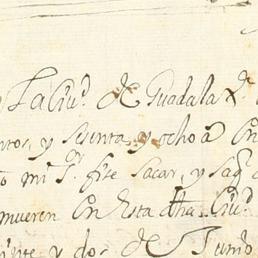 La Ciu.d de Guadala x.a
ntos, y sesenta, y ocho a
mi S.or fise sacar, y saq
mueren en esta dha Ciu.d
inte y dos de Junio